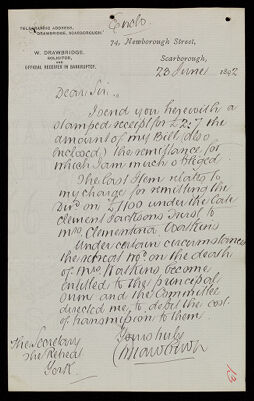 TELEGRAPHIC ADDRESS,
"DRAWBRIDGE, SCARBOROUGH."
Enclo.
W. DRAWBRIDGE,
SOLICITOR,
OFFICIAL RECEIVER IN BANKRUPTCY.
74, Newborough Street,
Scarborough,
23 June 1892
Dear Sir,
I send you herewith a
stamped receipt for £2:7 the
amount of my Bill (also
enclosed) the remittance for
which I am much obliged
The last Item relates to
my charge for remitting the
Divd on £1100 under the late
Clement Jacksons Trust to
Mrs Clementina Watkins
Under certain circumstances
the on the death
of Mrs Watkins become
entitled to the principal
sum and the Committee
directed me to debit the cost
of transmission to them.
Yours truly
The Secretary
The Retreat
York
13